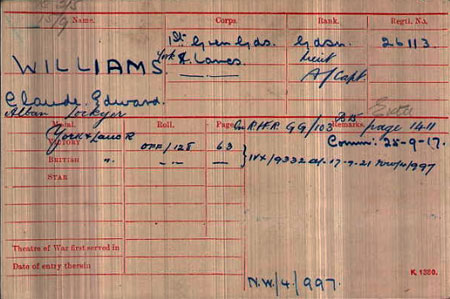 Name. Corps. Rank. Regtl. No.
1st Gren Gds. Gdsn. 26113
WILLIAMS. York & Lancs. Lieut
A/Capt.
Claude Edward.
Alban Lockyer
Medal. Roll. Page. Remarks.
York & Lanc R GG/103 page 1411
VICTORY OFF/125 63 Comm: 25-9-17.
BRITISH " — " — — " — IVX/9332 17-9-21 NW/4/997
STAR
Theatre of War first served in
Date of entry therein
K. 1380.
N.W/4/997.